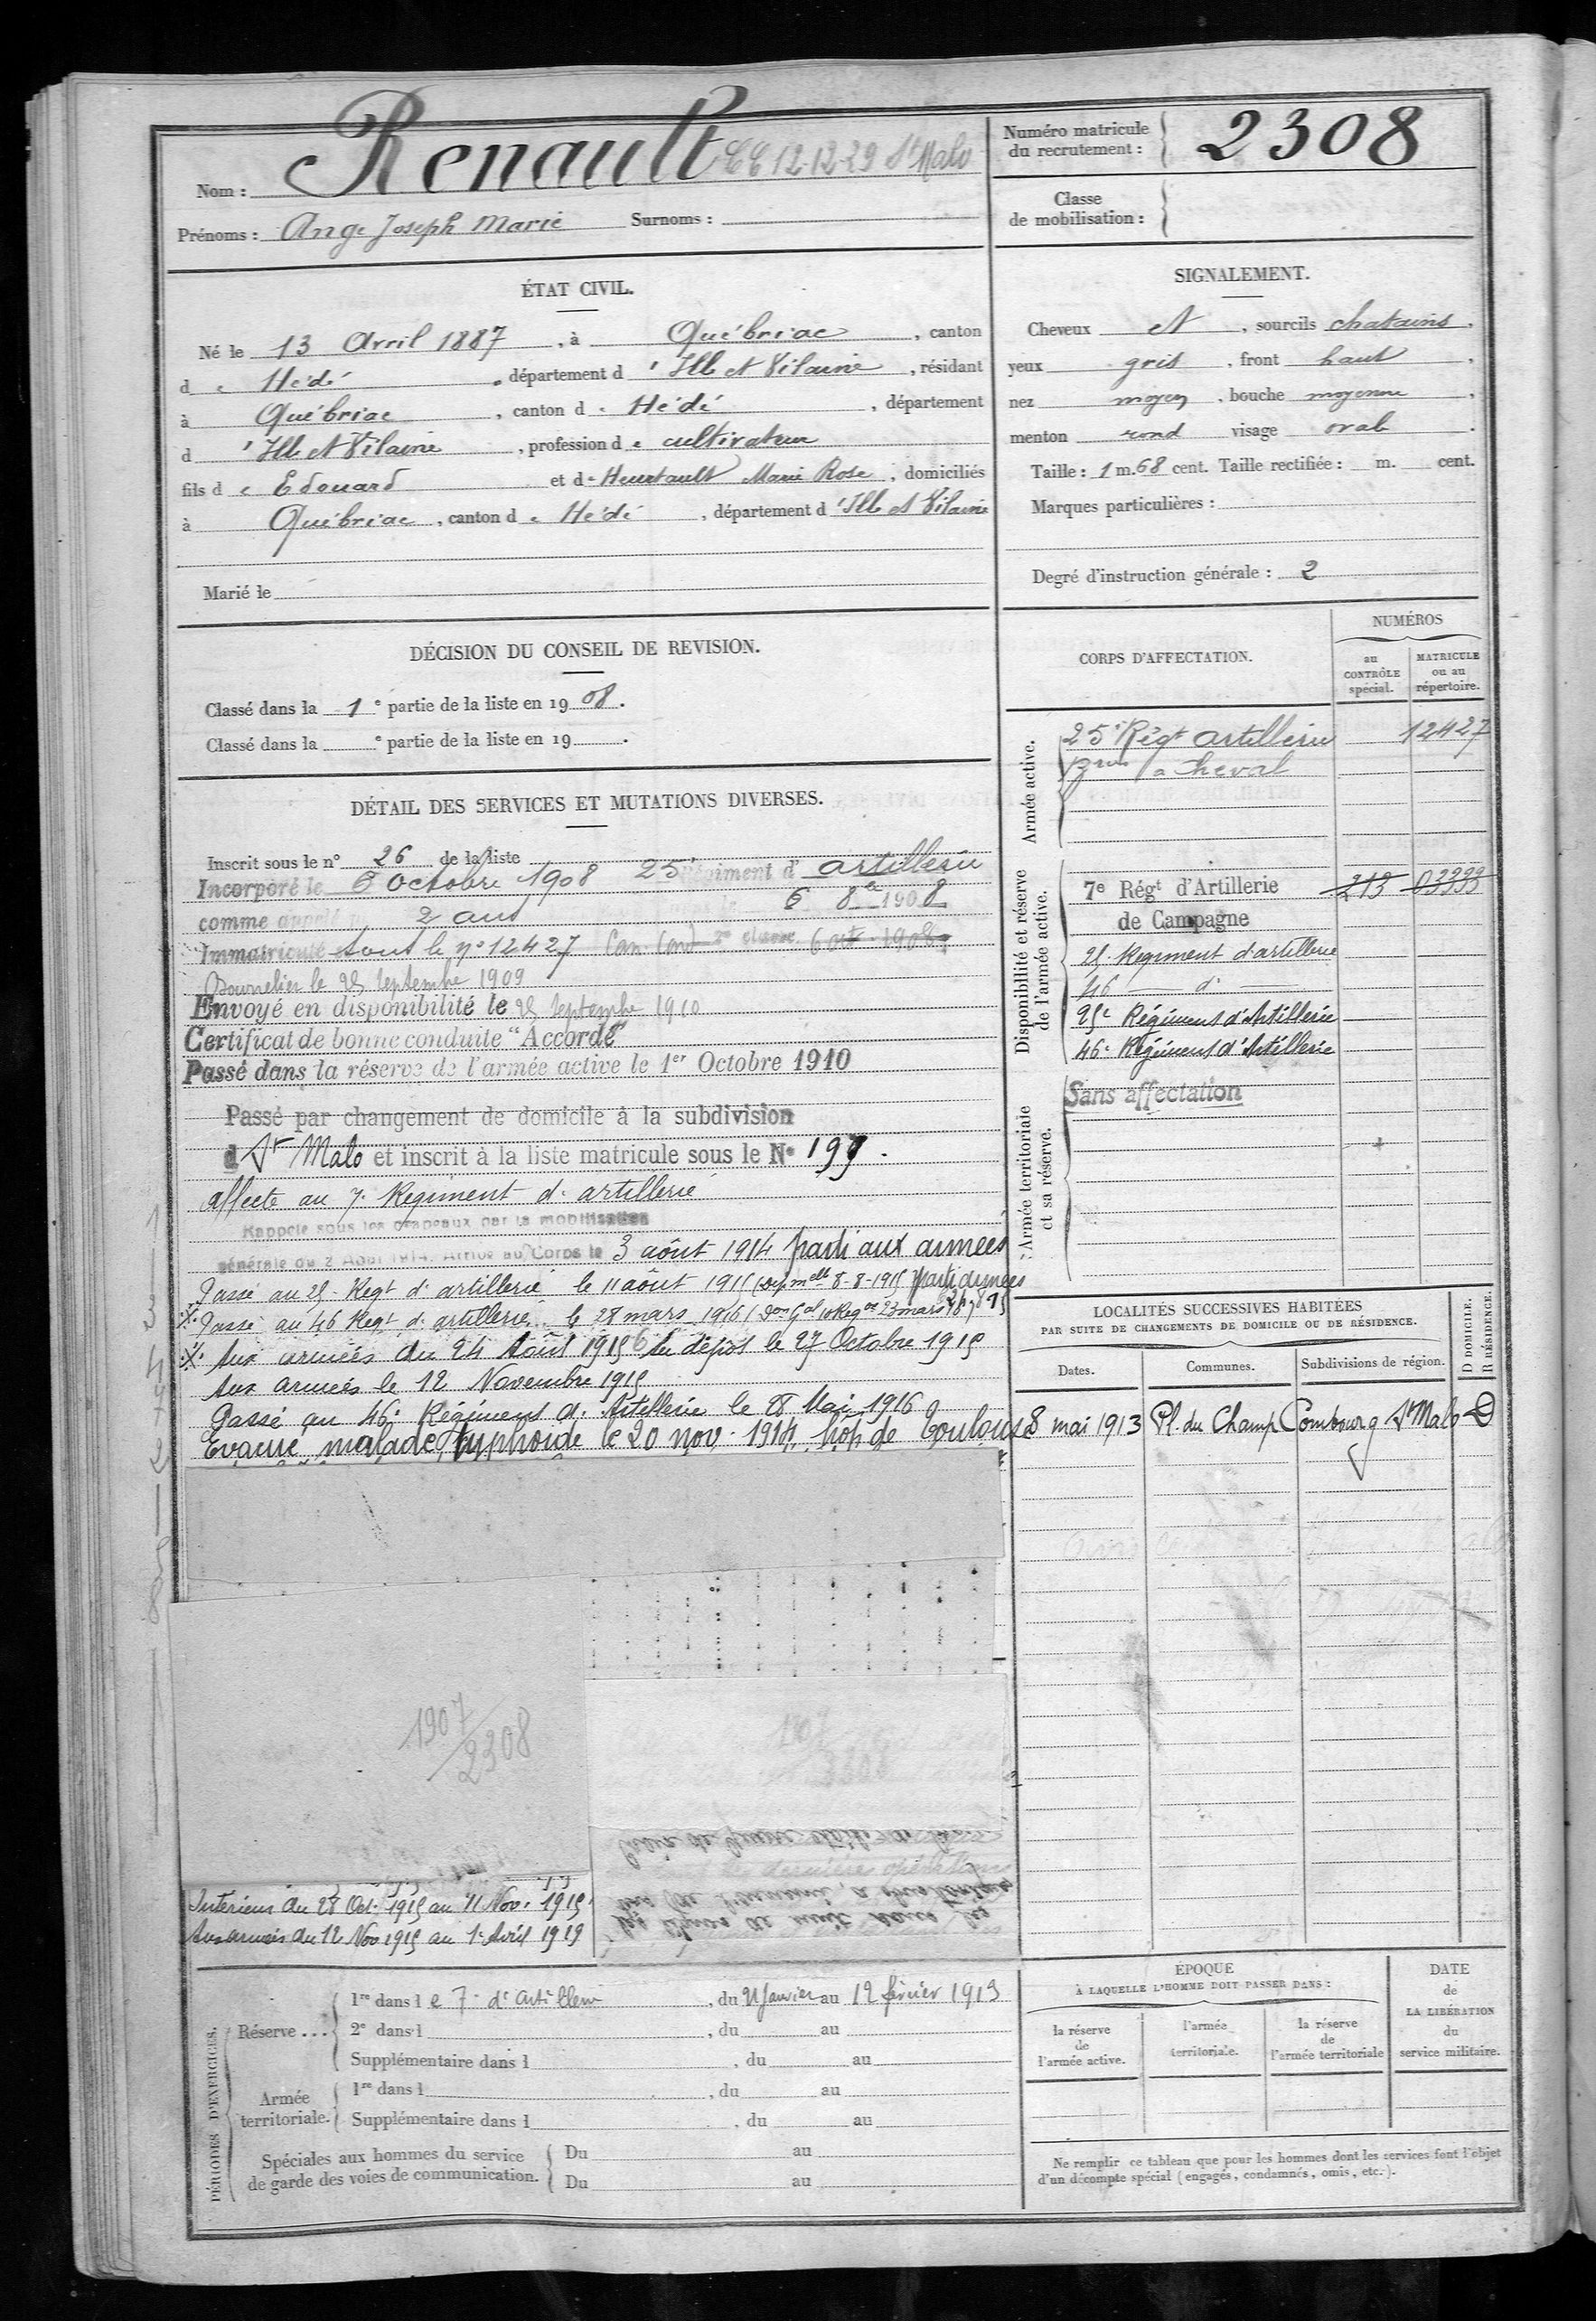 Nom : Renault CC 12-12-29 St Malo
Prénoms : Ange Joseph Marie Surnoms :
Numéro matricule du recrutement : 2308
Classe de mobilisation :
ÉTAT CIVIL.
Né le 13 Avril 1887, à Québriac, canton
de Hédé, département d'Ille et Vilaine, résidant
à Québriac, canton de Hédé, département
d'Ille et Vilaine, profession de cultivateur
fils de Edouard et de Heurtault Marie Rose, domiciliés
à Québriac, canton de Hédé, département d'Ille et Vilaine
Marié le
SIGNALEMENT.
Cheveux et, sourcils chatains,
yeux gris, front haut,
nez moyen, bouche moyenne,
menton rond visage ovale.
Taille : 1 m. 68 cent. Taille rectifiée : m. cent.
Marques particulières :
Degré d'instruction générale : 2
DÉCISION DU CONSEIL DE REVISION.
Classé dans la 1e partie de la liste en 1908.
Classé dans la e partie de la liste en 19 .
DÉTAIL DES SERVICES ET MUTATIONS DIVERSES.
Inscrit sous le n° 26 de la liste
Incorporé le 6 Octobre 1908 25e Régiment d'artillerie
comme appelé 2 ans 6 8bre 1908
Immatriculé sous le n° 12427 Can. Cond 2e classe 6 oct 1908
Bourrelier le 25 Septembre 1909
Envoyé en disponibilité le 25 Septembre 1910
Certificat de bonne conduite "Accordé"
Passé dans la réserve de l'armée active le 1er Octobre 1910
Passé par changement de domicile à la subdivision
d St Malo et inscrit à la liste matricule sous le N° 199.
affecté au 7e Régiment d'artillerie
Rappelé sous les drapeaux par la mobilisation
générale du 2 Août 1914. Arrivé au Corps le 3 août 1914 parti aux armées
Passé au 25e Regt d'artillerie le 11 août 1915 (Dep. melle 8-8-1915) parti armées
Passé au 46 Regt d'artillerie le 28 mars 1916 (Don Gal 10 Regon 23 mars
Aux armées du 24 Août 1915 Au dépôt le 27 Octobre 1915
Aux armées le 12 Novembre 1915
Passé au 46e Régiment d'Artillerie le 8 Mai 1916
Evacué malade typhoïde le 20 nov. 1914 hôp. de Toulouse
1907
2308
Intérieur du 28 Oct. 1915 au 11 Nov. 1915
Aux armées du 12 Nov 1915 au 1er Avril 1919
CORPS D'AFFECTATION.
NUMÉROS
au CONTRÔLE spécial.
MATRICULE ou au répertoire.
Armée active.
25e Régt artillerie 12427
à cheval
Disponibilité et réserve de l'armée active.
7e Régt d'Artillerie 213 03999
de Campagne
25. Régiment d'artillerie
46 — d° —
25e Régiment d'Artillerie
46e Régiment d'Artillerie
Armée territoriale et sa réserve.
Sans affectation
LOCALITÉS SUCCESSIVES HABITÉES
PAR SUITE DE CHANGEMENTS DE DOMICILE OU DE RÉSIDENCE.
Dates. Communes. Subdivisions de région. D DOMICILE. R RÉSIDENCE.
8 mai 1913 Pl. du Champ Combourg St Malo D
PÉRIODES D'EXERCICES.
Réserve ... 1re dans le 7e d'Artillerie, du 21 Janvier au 12 février 1913
2e dans l , du au
Supplémentaire dans l , du au
Armée territoriale. 1re dans l , du au
Supplémentaire dans l , du au
Spéciales aux hommes du service de garde des voies de communication. Du au
Du au
ÉPOQUE
À LAQUELLE L'HOMME DOIT PASSER DANS :
la réserve de l'armée active.
l'armée territoriale.
la réserve de l'armée territoriale
DATE de LA LIBÉRATION du service militaire.
Ne remplir ce tableau que pour les hommes dont les services font l'objet
d'un décompte spécial (engagés, condamnés, omis, etc.).